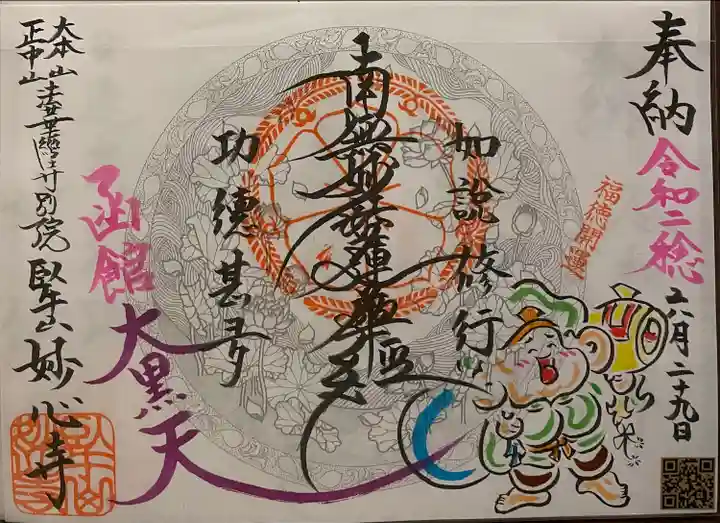 奉納
令和二稔
六月二十九日
福徳開運
如説修行
南無妙法蓮華経
功徳甚多
函館
大黒天
大本山
正中山
法華経寺別院
妙心寺